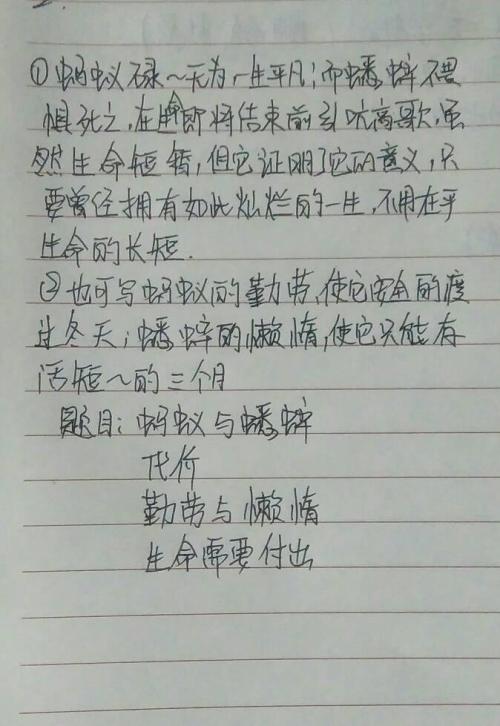 2.
①蚂蚁碌~无为,一生平凡;而蟋蟀不畏
惧死亡,在生命即将结束前引吭高歌,虽
然生命短暂,但它证明了它的意义,只
要曾经拥有如此灿烂的一生,不用在乎
生命的长短.
②也可写蚂蚁的勤劳,使它安全的度
过冬天;蟋蟀的懒惰,使它只能存
活短~的三个月
题目:蚂蚁与蟋蟀
代价
勤劳与懒惰
生命需要付出